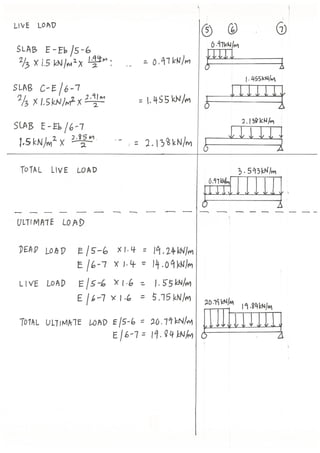 LIVE LOAD
5 6 7
SLAB E-Eb/5-6
2/3 X 1.5 kN/m² x 1.94m/2 : = 0.97 kN/m
0.97kN/m
SLAB C-E/6-7
2/3 X 1.5kN/m² x 2.91m/2 = 1.455 kN/m
1.455kN/m
SLAB E-Eb/6-7
1.5kN/m² X 2.85m/2 = 2.138 kN/m
2.138kN/m
TOTAL LIVE LOAD
3.593kN/m
0.97kN/m
ULTIMATE LOAD
DEAD LOAD E/5-6 X1.4 = 19.24kN/m
E/6-7 X 1.4 = 14.09kN/m
LIVE LOAD E/5-6 X1.6 = 1.55kN/m
E/6-7 X 1.6 = 5.75 kN/m
20.79kN/m
19.84kN/m
TOTAL ULTIMATE LOAD E/5-6 = 20.79 kN/m
E/6-7 = 19.84 kN/m